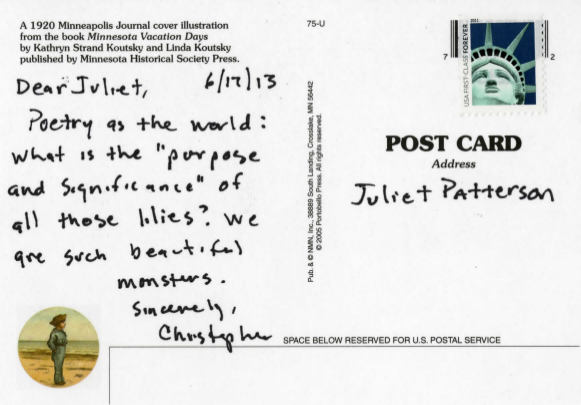 A 1920 Minneapolis Journal cover illustration
from the book Minnesota Vacation Days
by Kathryn Strand Koutsky and Linda Koutsky
published by Minnesota Historical Society Press.
Dear Juliet, 6/17/13
Poetry as the world:
what is the "purpose
and significance" of
all those lilies? We
are such beautiful
monsters.
Sincerely,
Christopher
75-U
Pub. & © NMN, Inc., 38889 South Landing, Crosslake, MN 56442
© 2005 Portobello Press. All rights reserved.
2011
USA FIRST-CLASS FOREVER
7 2
POST CARD
Address
Juliet Patterson
SPACE BELOW RESERVED FOR U.S. POSTAL SERVICE